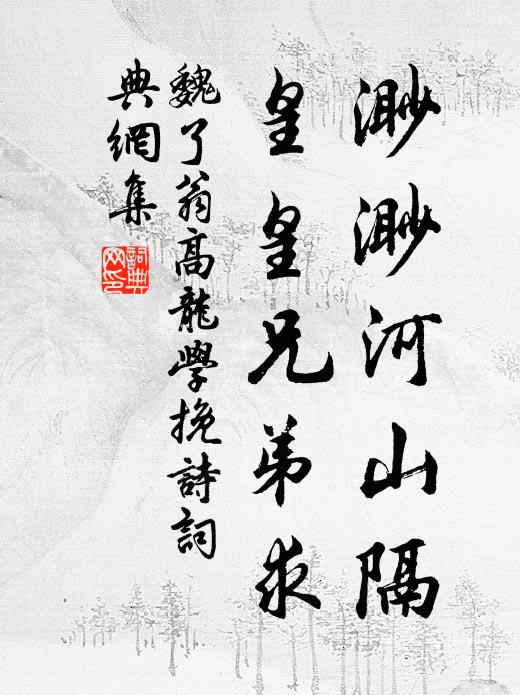 渺渺河山隔
皇皇兄弟求
魏了翁高龍學挽詩詞
典網集
詞典
网印